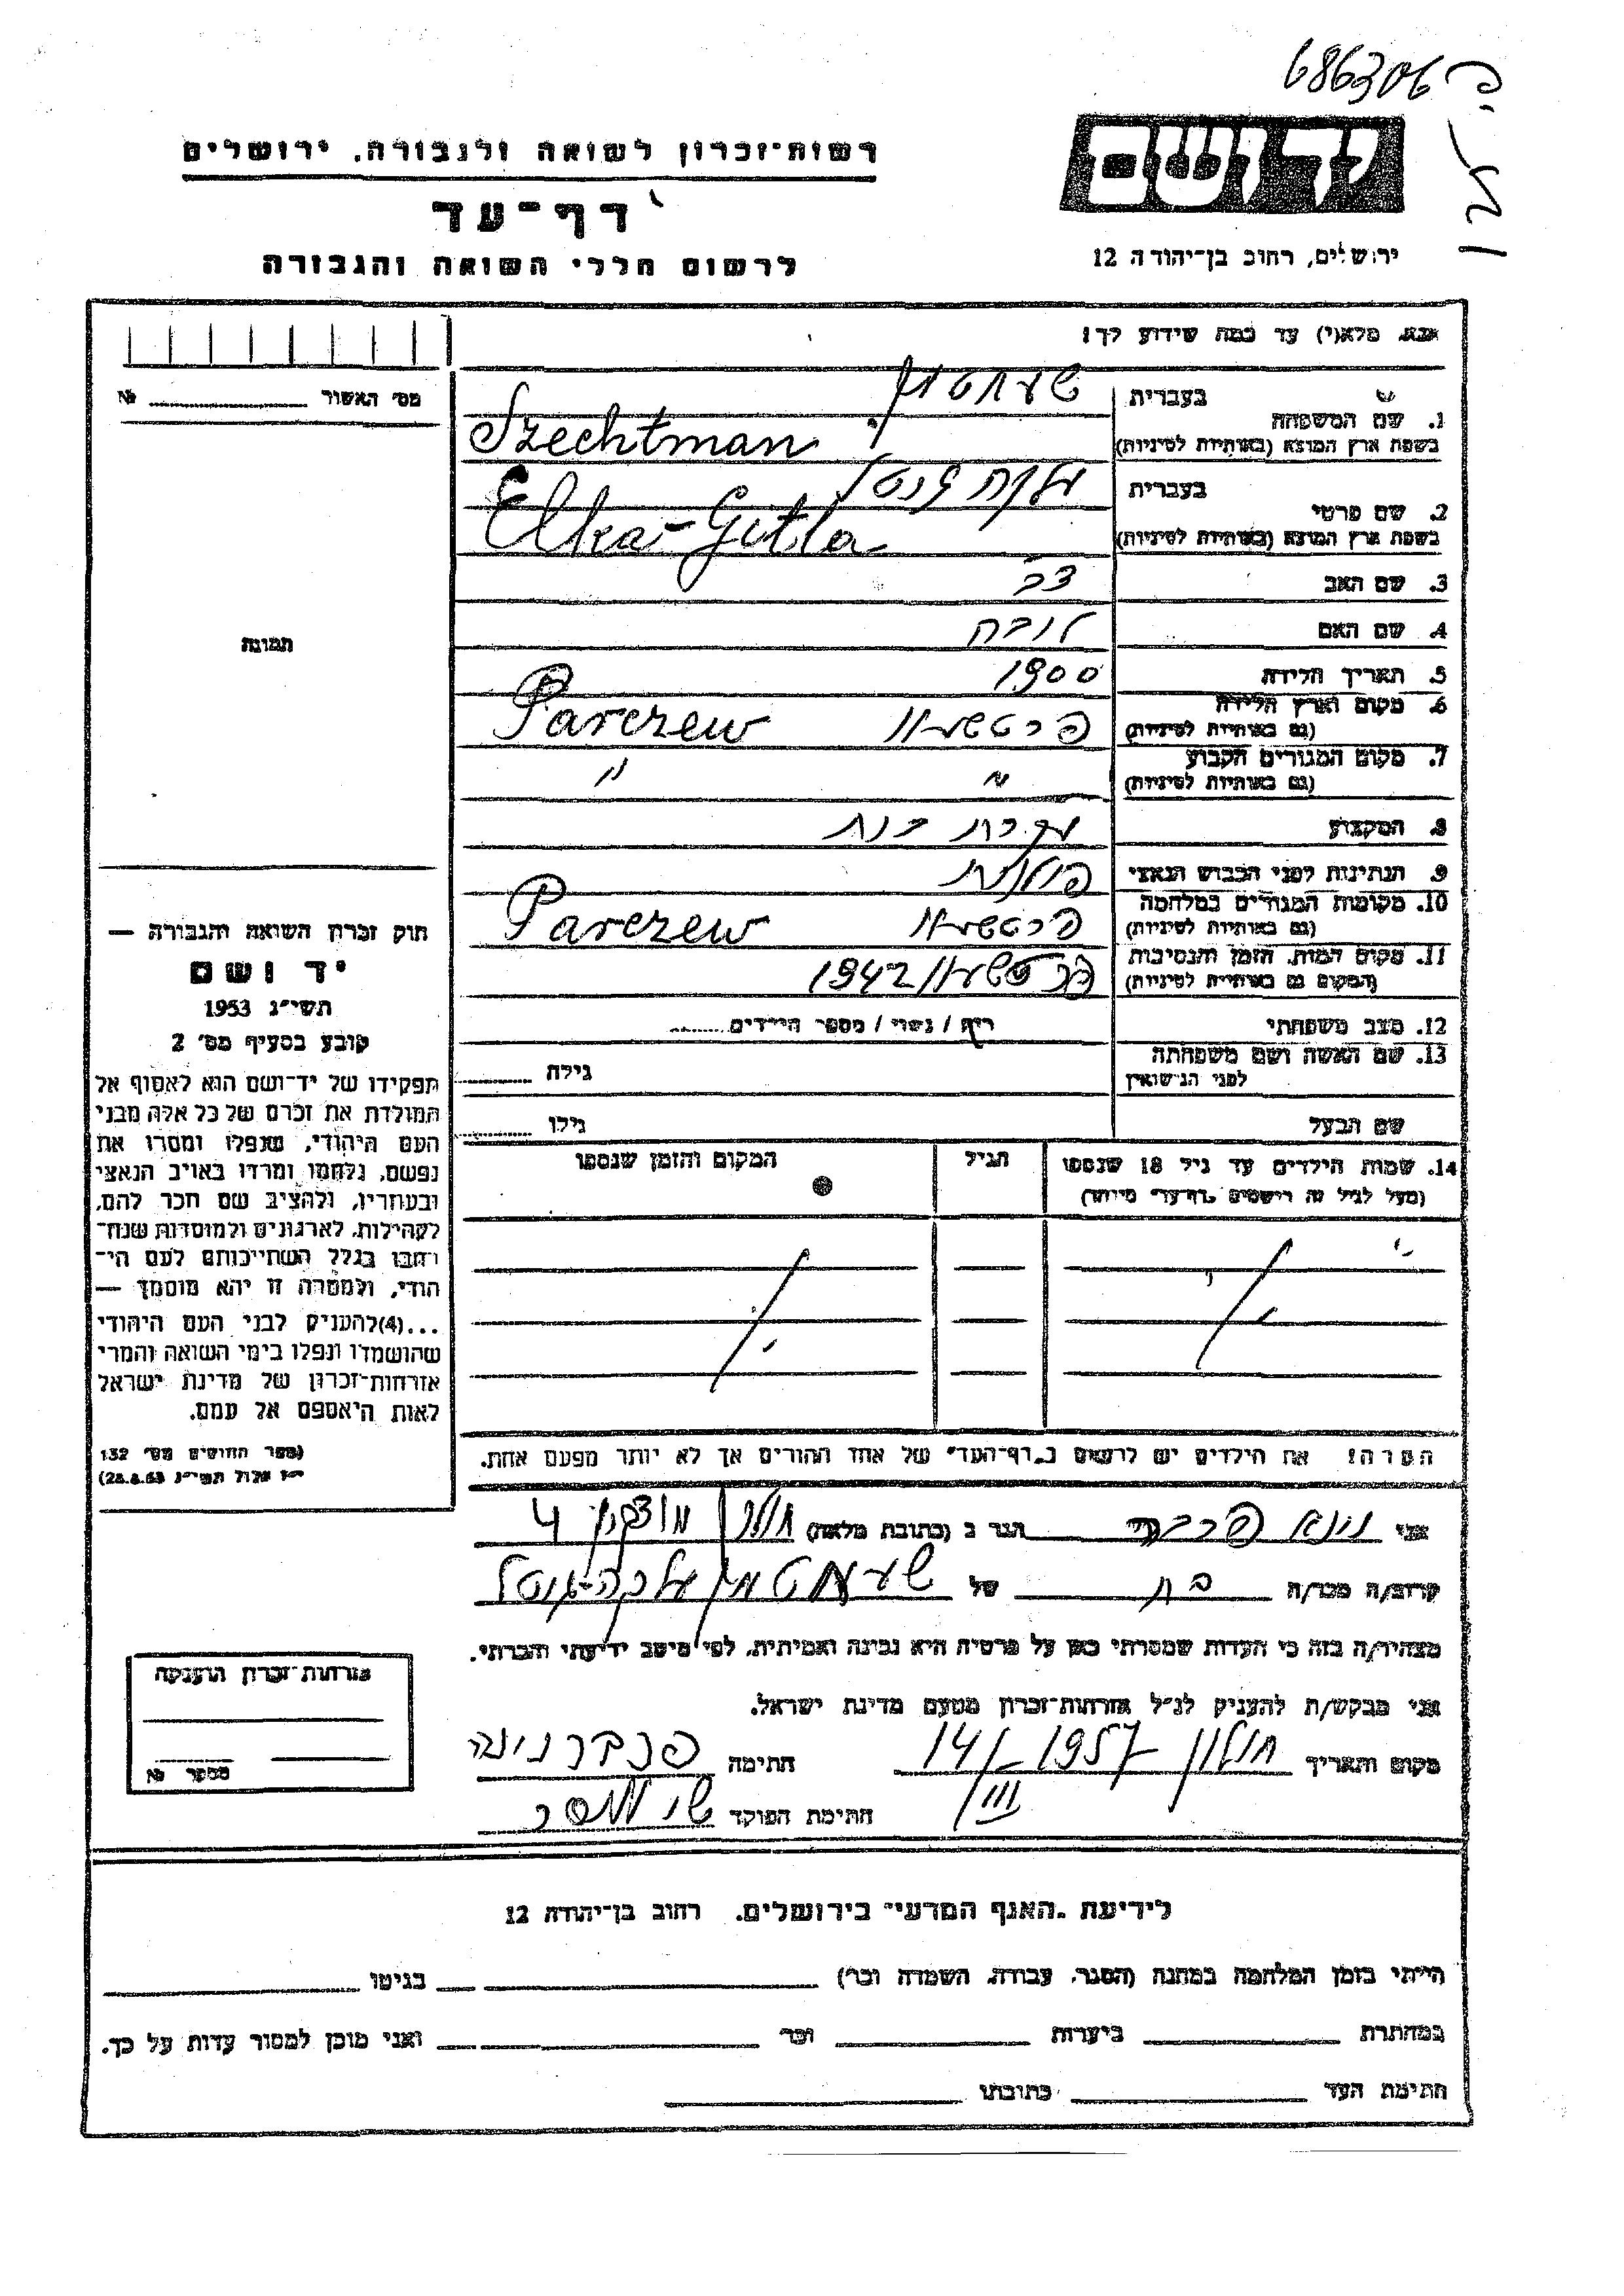 686306
רשות־זכרון לשואה ולגבורה, ירושלים
דף־עד
לרשום חללי השואה והגבורה
יד ושם
ירושלים, רחוב בן־יהודה 12
אנא, מלא(י) עד כמה שידוע לך!
מס׳ האשור № 
1. שם המשפחה
בעברית שעכטמן
בשפת ארץ המוצא (באותיות לטיניות) Szechtman
2. שם פרטי
בעברית עלקה גיטל
בשפת ארץ המוצא (באותיות לטיניות) Elka-Gitla
3. שם האב צבי
4. שם האם לובה
5. תאריך הלידה 1900
6. מקום וארץ הלידה
(גם באותיות לטיניות) פרטשאוו Parczew
7. מקום המגורים הקבוע
(גם באותיות לטיניות) " "
8. המקצוע עקרת בית
9. הנתינות לפני הכבוש הנאצי פולנית
10. מקומות המגורים במלחמה
(גם באותיות לטיניות) פרטשאוו Parczew
11. מקום המות, הזמן והנסיבות
(המקום גם באותיות לטיניות) פרטשאוו 1942
12. מצב משפחתי רווק / נשוי / מספר הילדים
13. שם האשה ושם משפחתה
לפני הנישואין גילה
שם הבעל גילו
14. שמות הילדים עד גיל 18 שנספו
(מעל לגיל זה רושמים „דף־עד״ מיוחד)
הגיל
המקום והזמן שנספו
הערה! את הילדים יש לרשום ב„דף־העד״ של אחד ההורים אך לא יותר מפעם אחת.
תמונה
חוק זכרון השואה והגבורה —
יד ושם
תשי״ג 1953
קובע בסעיף מס׳ 2
תפקידו של יד־ושם הוא לאסוף אל
המולדת את זכרם של כל אלה מבני
העם היהודי, שנפלו ומסרו את
נפשם, נלחמו ומרדו באויב הנאצי
ובעוזריו, ולהציב שם וזכר להם,
לקהילות, לארגונים ולמוסדות שנח־
רבו בגלל השתייכותם לעם הי־
הודי, ולמטרה זו יהא מוסמך —
...(4)להעניק לבני העם היהודי
שהושמדו ונפלו בימי השואה והמרי
אזרחות־זכרון של מדינת ישראל
לאות היאספם אל עמם.
(ספר החוקים מס׳ 132
י״ז אלול תשי״ג 28.8.53)
אני הגר ב (כתובת מלאה) חולון 4
קרוב/ה מכר/ה בת של שעכטמן עלקה־גיטל
מצהיר/ה בזה כי העדות שמסרתי כאן על פרטיה היא נכונה ואמיתית, לפי מיטב ידיעתי והכרתי.
אני מבקש/ת להעניק לנ״ל אזרחות־זכרון מטעם מדינת ישראל.
מקום ותאריך חולון 14/III 1957 חתימה
חתימת הפוקד
אזרחות־זכרון הוענקה
מספר №
לידיעת „האגף המדעי״ בירושלים, רחוב בן־יהודה 12
הייתי בזמן המלחמה במחנה (הסגר, עבודה, השמדה וכו׳) בגיטו
במחתרת ביערות וכו׳ ואני מוכן למסור עדות על כך.
חתימת העד כתובתו